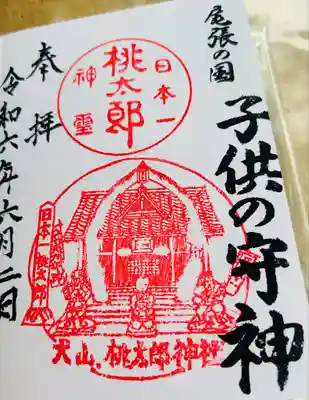 尾張の国
子供の守神
日本一
桃太郎
神霊
日本一桃太郎
犬山.桃太郎神社
奉拝
令和六年六月二日